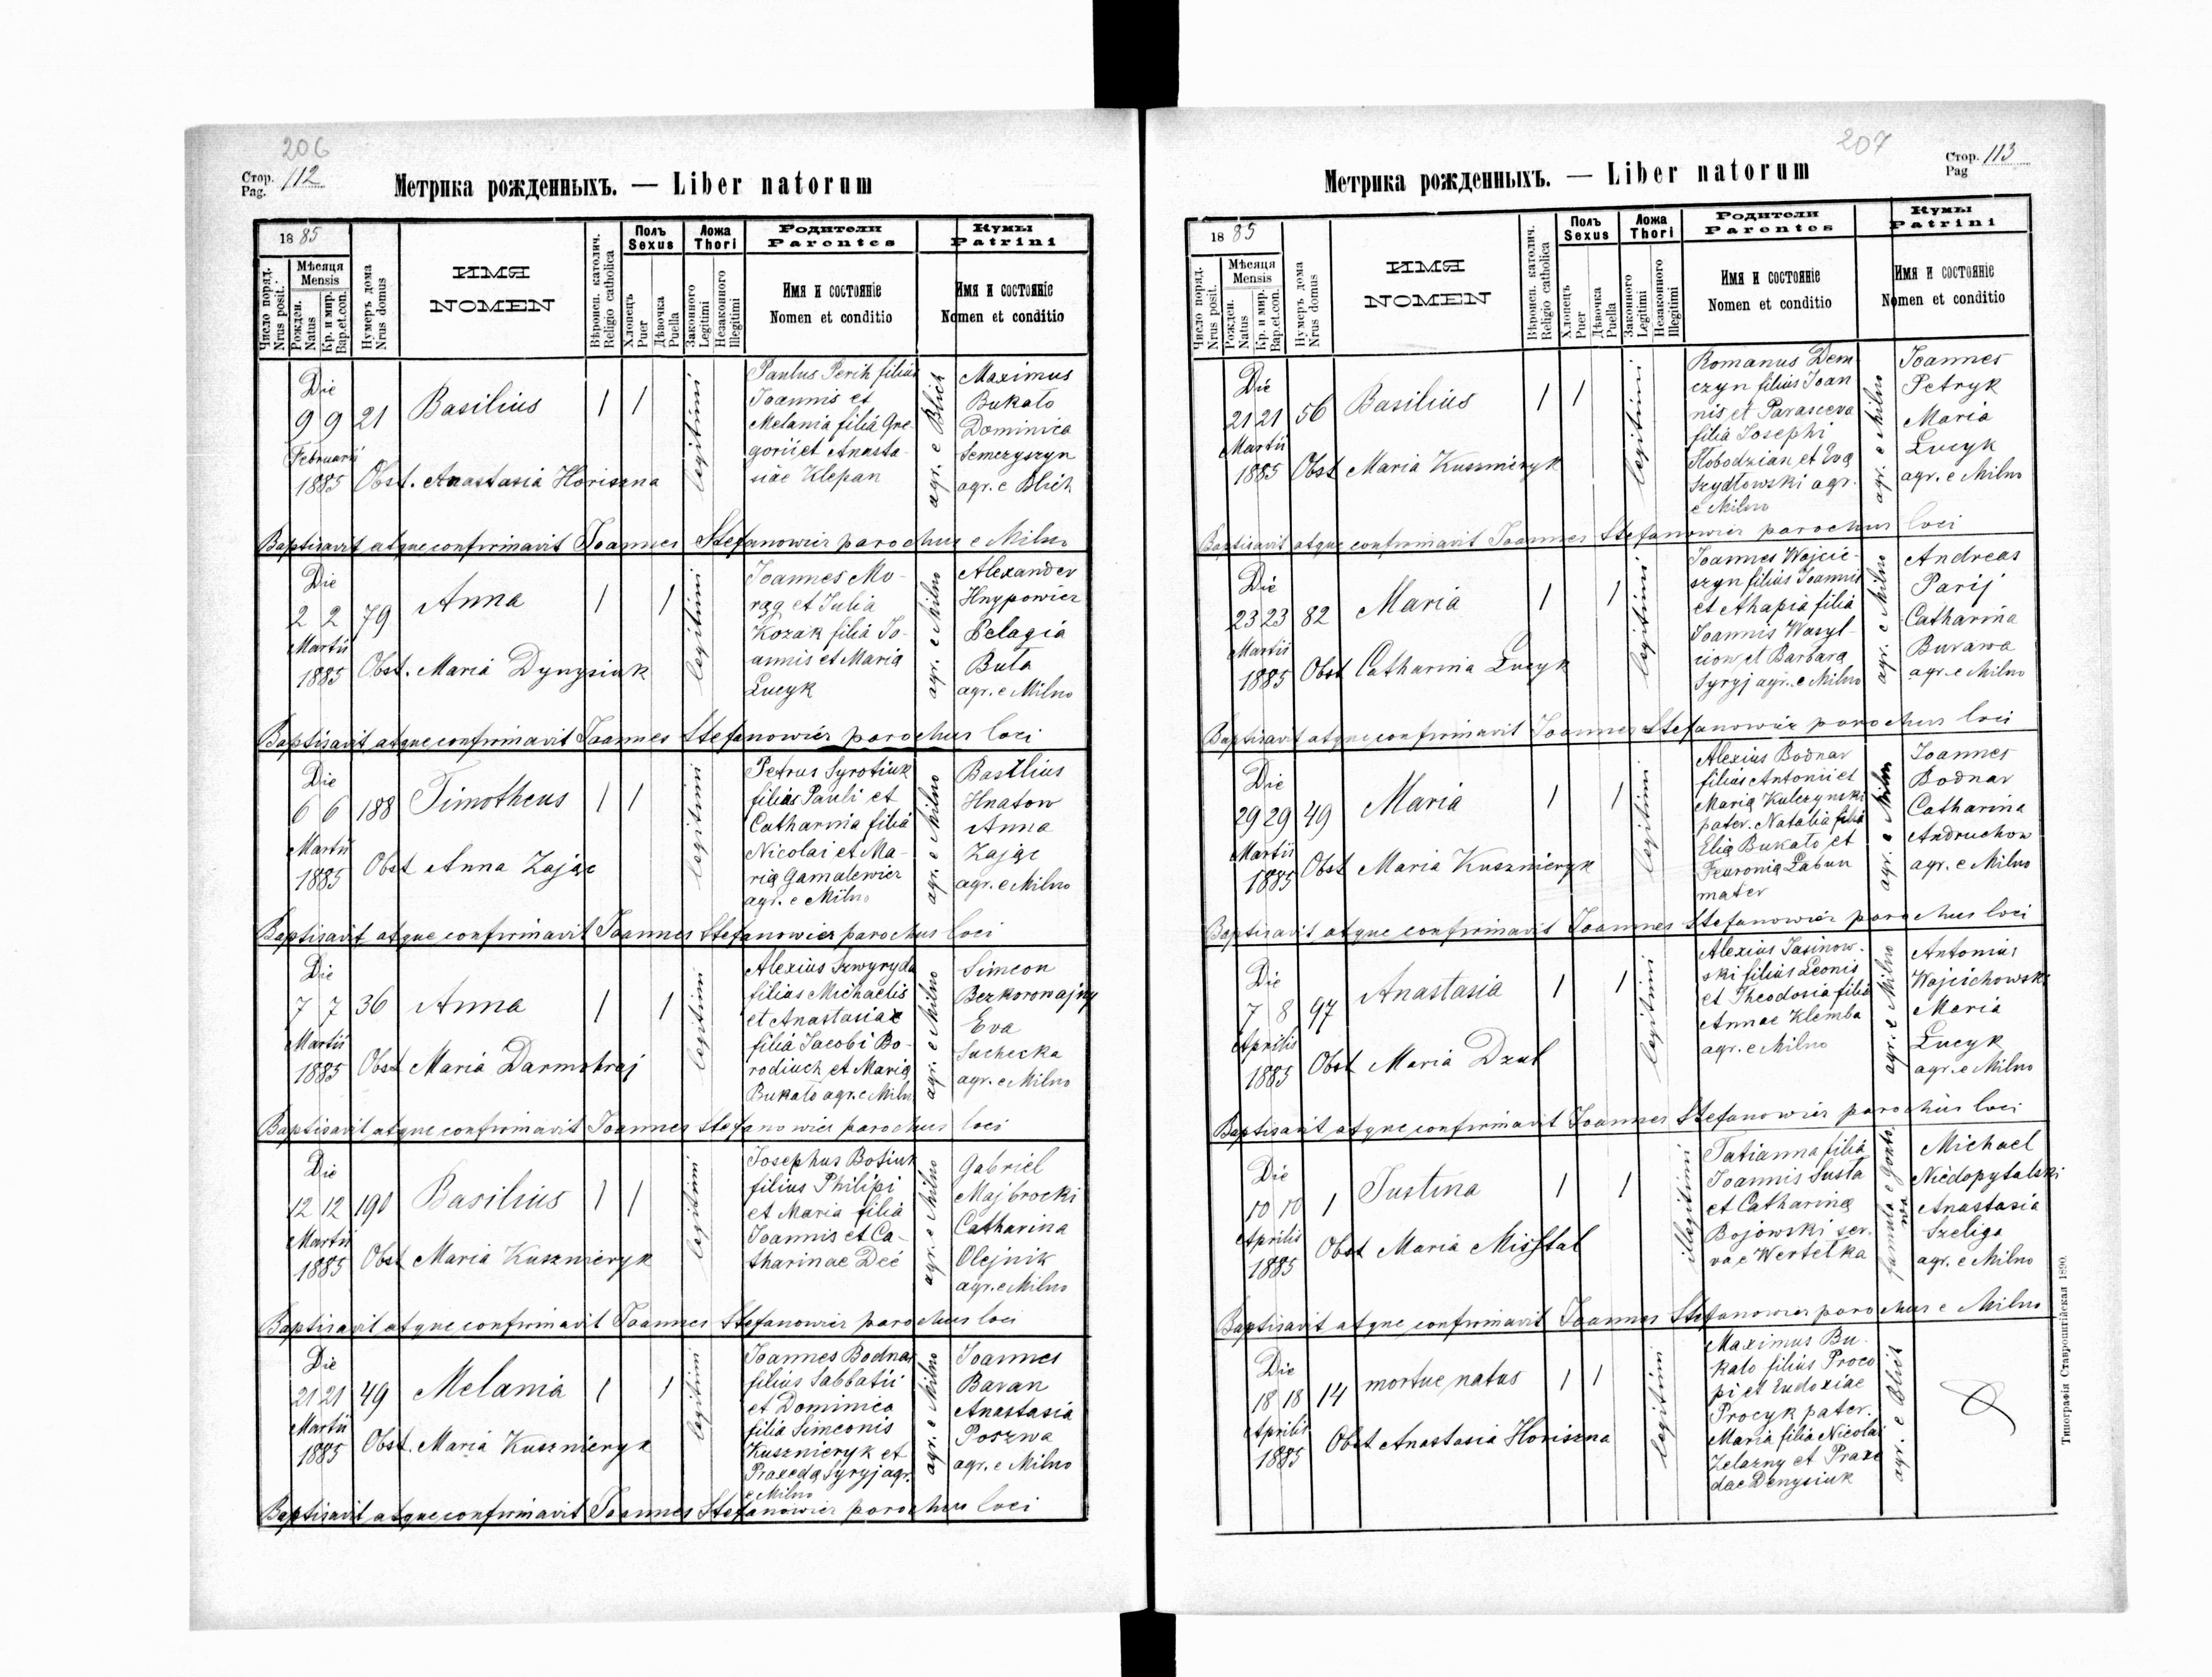 206
Стор. 112
Pag.
Метрика рожденныхъ. — Liber natorum
1885
Число поряд.
Nrus posit.
Мѣсяця
Mensis
Рожден.
Natus
Кр. и мир.
Bap.et.con.
Нумеръ дома
Nrus domus
ИМЯ
NOMEN
Вѣроисп. католич.
Religio catholica
Полъ
Sexus
Хлопецъ
Puer
Дѣвочка
Puella
Ложа
Thori
Законного
Legitimi
Незаконного
Illegitimi
Родители
Parentes
Имя и состоянiе
Nomen et conditio
Кумы
Patrini
Имя и состоянiе
Nomen et conditio
Die
9 9 21 Basilius 1 1
Februarii
1885 Obst. Anastasia Horiszna
legitimi
Paulus Perih filius
Joannis et
Melania filia Gre-
gorii et Anasta-
siae Klepan
agr. e Blich
Maximus
Bukato
Dominica
Semczyszyn
agr. e Blich
Baptisavit atque confirmavit Joannes Stefanowicz parochus e Milno
Die
2 2 79 Anna 1 1
Martii
1885 Obst. Maria Dynysiuk
legitimi
Joannes Mo-
rąg et Julia
Kozak filia Jo-
annis et Maria
Lucyk
agr. e Milno
Alexander
Hnypowicz
Pelagia
Buta
agr. e Milno
Baptisavit atque confirmavit Joannes Stefanowicz parochus loci
Die
6 6 188 Timotheus 1 1
Martii
1885 Obst Anna Zając
legitimi
Petrus Syrotiuk
filius Pauli et
Catharina filia
Nicolai et Ma-
ria Gamalewicz
agr. e Milno
agr. e Milno
Basilius
Hnatow
Anna
Zając
agr. e Milno
Baptisavit atque confirmavit Joannes Stefanowicz parochus loci
Die
7 7 36 Anna 1 1
Martii
1885 Obst Maria Darmohraj
legitimi
Alexius Szwyryda
filius Michaelis
et Anastasiae
filia Jacobi Bo-
rodiuch et Maria
Bukato agr. e Milno
agr. e Milno
Simeon
Bezkoronajny
Eva
Suchecka
agr. e Milno
Baptisavit atque confirmavit Joannes Stefanowicz parochus loci
Die
12 12 190 Basilius 1 1
Martii
1885 Obst Maria Kuszmeryk
legitimi
Josephus Bosiuk
filius Philipi
et Maria filia
Joannis et Ca-
tharinae Deć
agr. e Milno
Gabriel
Majbrocki
Catharina
Olejnik
agr. e Milno
Baptisavit atque confirmavit Joannes Stefanowicz parochus loci
Die
21 21 49 Melania 1 1
Martii
1885 Obst. Maria Kusznieryk
legitimi
Joannes Bodnar
filius Sabbatii
et Dominica
filia Simeonis
Kusznieryk et
Praxeda Syryj agr.
e Milno
agr. e Milno
Joannes
Baran
Anastasia
Poszwa
agr. e Milno
Baptisavit atque confirmavit Joannes Stefanowicz parochus loci
207
Стор. 113
Pag
Метрика рожденныхъ. — Liber natorum
1885
Число поряд.
Nrus posit.
Мѣсяця
Mensis
Рожден.
Natus
Кр. и мир.
Bap.et.con.
Нумеръ дома
Nrus domus
ИМЯ
NOMEN
Вѣроисп. католич.
Religio catholica
Полъ
Sexus
Хлопецъ
Puer
Дѣвочка
Puella
Ложа
Thori
Законного
Legitimi
Незаконного
Illegitimi
Родители
Parentes
Имя и состоянiе
Nomen et conditio
Кумы
Patrini
Имя и состоянiе
Nomen et conditio
Die
21 21 56 Basilius 1 1
Martii
1885 Obst Maria Kuszmeryk
legitimi
Romanus Dem-
czyn filius Joan
nis et Parasceva
filia Josephi
Slobodzian et Eva
Szydlowski agr.
e Milno
agr. e Milno
Joannes
Petryk
Maria
Lucyk
agr. e Milno
Baptisavit atque confirmavit Joannes Stefanowicz parochus loci
Die
23 23 82 Maria 1 1
Martii
1885 Obst Catharina Lucyk
legitimi
Joannes Wojcie-
szyn filius Joannis
et Ahapia filia
Joannis Wasyl-
ciow et Barbara
Syryj agr. e Milno
agr. e Milno
Andreas
Parij
Catharina
Burawa
agr. e Milno
Baptisavit atque confirmavit Joannes Stefanowicz parochus loci
Die
29 29 49 Maria 1 1
Martii
1885 Obst Maria Kusznieryk
legitimi
Alexius Bodnar
filius Antonii et
Maria Kulczynski
pater. Natalia filia
Elia Bukato et
Feuronia Labun
mater
agr. e Milno
Joannes
Bodnar
Catharina
Andruchow
agr. e Milno
Baptisavit atque confirmavit Joannes Stefanowicz parochus loci
Die
7 8 97 Anastasia 1 1
Aprilis
1885 Obst Maria Dzul
legitimi
Alexius Jasinow-
ski filius Leonis
et Theodosia filia
Annae Klemba
agr. e Milno
agr. e Milno
Antonius
Wojcichowski
Maria
Lucyk
agr. e Milno
Baptisavit atque confirmavit Joannes Stefanowicz parochus loci
Die
10 10 1 Justina 1 1
Aprilis
1885 Obst Maria Misstal
illegitimi
Tatianna filia
Joannis Susta
et Catharina
Bojowski ser-
va e Wertelka
famula e Gonto
wa
Michael
Niedopytalski
Anastasia
Szeliga
agr. e Milno
Baptisavit atque confirmavit Joannes Stefanowicz parochus e Milno
Die
18 18 14 mortue natus 1 1
Aprilis
1885 Obst Anastasia Horiszna
legitimi
Maximus Bu-
kato filius Proco
pi et Eudoxiae
Procyk pater.
Maria filia Nicolai
Zelazny et Praxe
dae Denysiuk
agr. e Blich
Типографiя Ставропигiйская 1890.